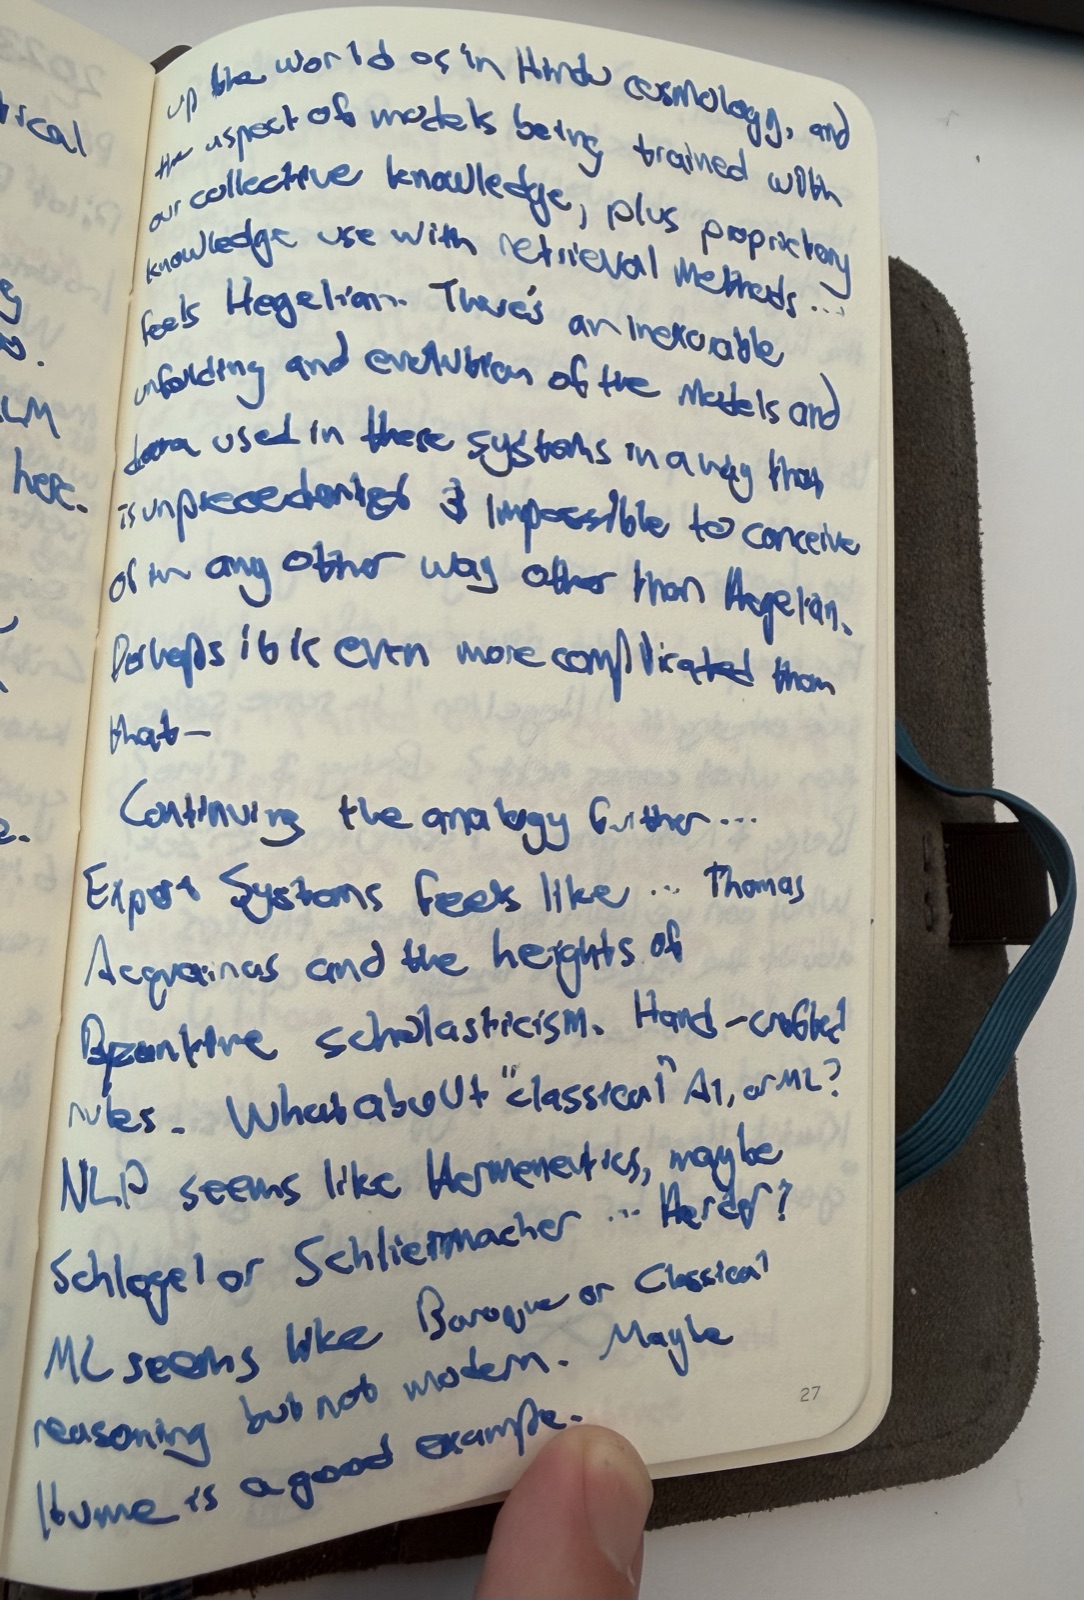 up the world as in Hindu cosmology, and
the aspect of models being trained with
our collective knowledge, plus proprietary
knowledge use with retrieval methods...
feels Hegelian. There's an inexorable
unfolding and evolution of the models and
data used in these systems in a way that
is unprecedented & impossible to conceive
of in any other way other than Hegelian.
Perhaps it is even more complicated than
that-
Continuing the analogy further...
Expert Systems feels like ... Thomas
Acquainas and the heights of
Byzantine scholasticism. Hand-crafted
rules. What about "classical" AI, or ML?
NLP seems like Hermeneutics, maybe
Schlegel or Schliermacher ... Herder?
ML seems like Baroque or Classical
reasoning but not modern. Maybe
Hume is a good example.
27
rical
LM
here.